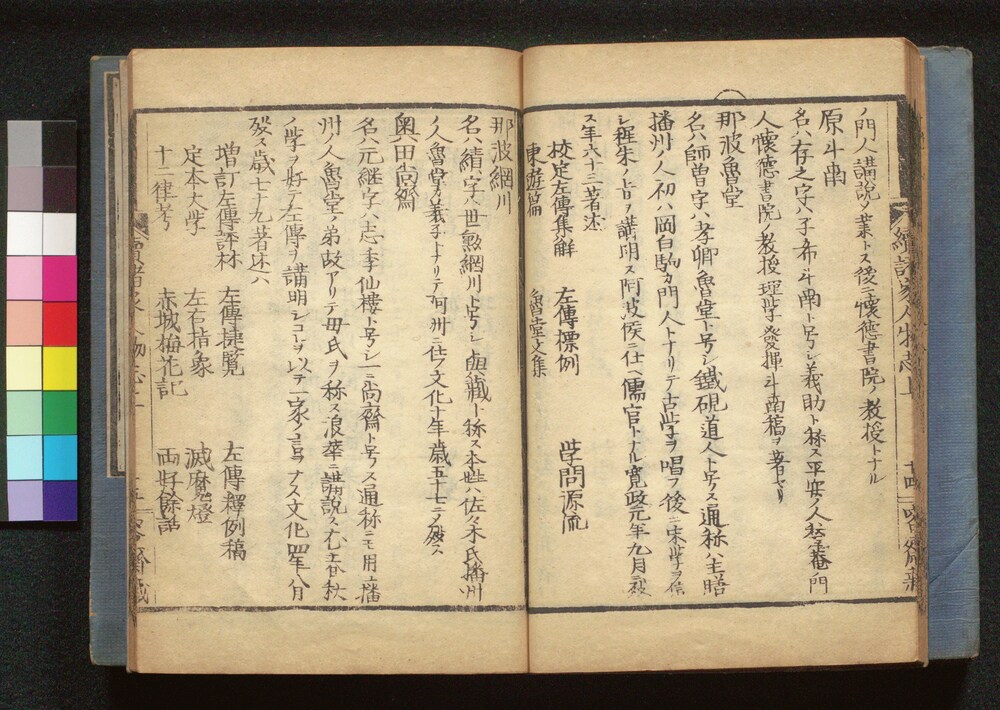 ノ門人講説ヲ業トス後ニ懷德書院ノ教授トナル
原斗南
名ハ存之字ハ子布斗南ト号シ義助ト称ス平安ノ人 菴門
人懷德書院ノ教授理学發揮斗南稿ヲ著セリ
那波魯堂
名ハ師曽字ハ孝卿魯堂ト号シ鐵硯道人ト号ス通称ハ主膳
播州ノ人初ハ岡白駒カ門人トナリテ古学ヲ唱フ後ニ宋学ヲ信
シ程朱ノ旨ヲ講明ス阿波侯ニ仕ヘ儒官トナル寛政元年九月ニ殁
ス年六十三著述
校定左傳集解 左傳標例 学問源流
東遊篇 魯堂文集
那波網川
名ハ績字ハ世 網川ト号シ 藏ト称ス本姓ハ佐々木氏播州
ノ人魯堂カ義子トナリテ阿州ニ仕フ文化十年歳五十七ニノ殁ス
奥田尚齋
名ハ元継字ハ志季仙樓ト号シ一ニ尚齋ト号ス通称ニモ用ユ播
州ノ人魯堂ノ弟故アリテ母氏ヲ称ス浪華ニ講説ス尤モ春秋
ノ学ヲ好テ左傳ヲ講明シコレヲ以テ一家ノ言ヲナス文化四年八月
殁ス歳七十九著述ハ
増訂左傳評林 左傳捷覧 左傳釋例稿
定本大学 左右指象 滅魔燈
十二律考 赤城梅花記 両好餘話